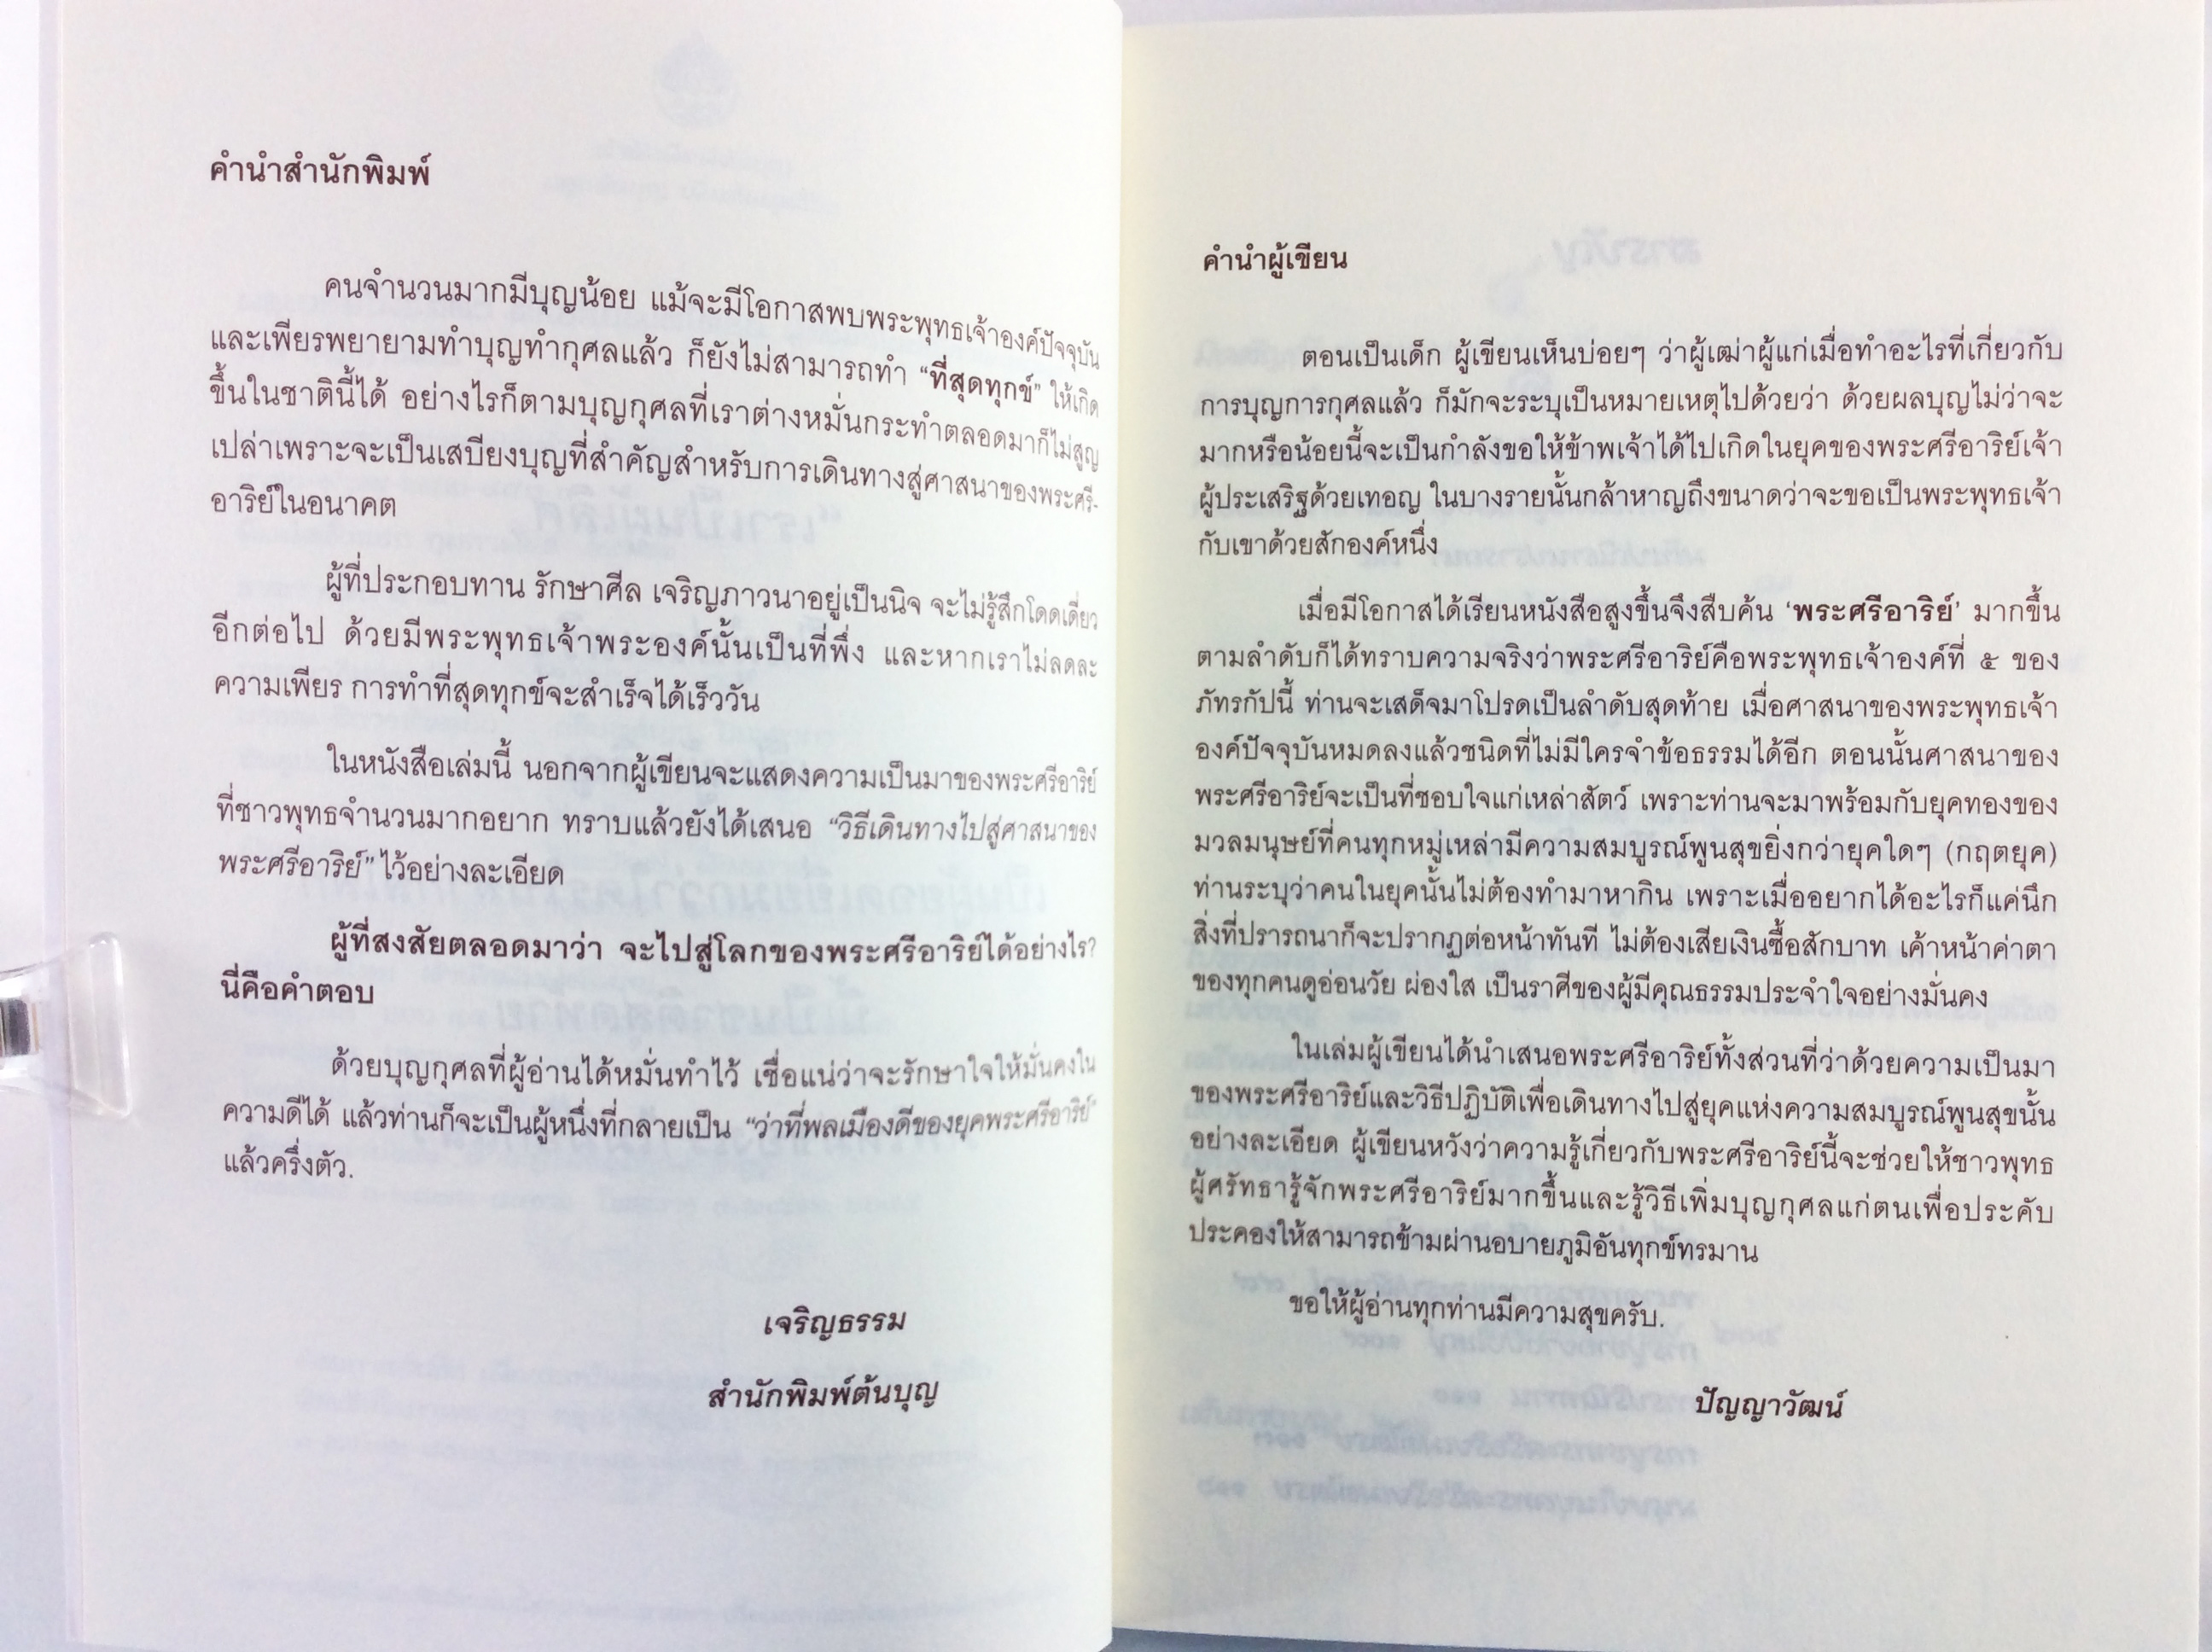 คำนำสำนักพิมพ์
คนจำนวนมากมีบุญน้อย แม้จะมีโอกาสพบพระพุทธเจ้าองค์ปัจจุบัน
และเพียรพยายามทำบุญทำกุศลแล้ว ก็ยังไม่สามารถทำ “ที่สุดทุกข์” ให้เกิด
ขึ้นในชาตินี้ได้ อย่างไรก็ตามบุญกุศลที่เราต่างหมั่นกระทำตลอดมาก็ไม่สูญ
เปล่าเพราะจะเป็นเสบียงบุญที่สำคัญสำหรับการเดินทางสู่ศาสนาของพระศรี-
อาริย์ในอนาคต
ผู้ที่ประกอบทาน รักษาศีล เจริญภาวนาอยู่เป็นนิจ จะไม่รู้สึกโดดเดี่ยว
อีกต่อไป ด้วยมีพระพุทธเจ้าพระองค์นั้นเป็นที่พึ่ง และหากเราไม่ลดละ
ความเพียร การทำที่สุดทุกข์จะสำเร็จได้เร็ววัน
ในหนังสือเล่มนี้ นอกจากผู้เขียนจะแสดงความเป็นมาของพระศรีอาริย์
ที่ชาวพุทธจำนวนมากอยาก ทราบแล้วยังได้เสนอ “วิธีเดินทางไปสู่ศาสนาของ
พระศรีอาริย์” ไว้อย่างละเอียด
ผู้ที่สงสัยตลอดมาว่า จะไปสู่โลกของพระศรีอาริย์ได้อย่างไร?
นี่คือคำตอบ
ด้วยบุญกุศลที่ผู้อ่านได้หมั่นทำไว้ เชื่อแน่ว่าจะรักษาใจให้มั่นคงใน
ความดีได้ แล้วท่านก็จะเป็นผู้หนึ่งที่กลายเป็น “ว่าที่พลเมืองดีของยุคพระศรีอาริย์”
แล้วครึ่งตัว.
เจริญธรรม
สำนักพิมพ์ต้นบุญ
คำนำผู้เขียน
ตอนเป็นเด็ก ผู้เขียนเห็นบ่อยๆ ว่าผู้เฒ่าผู้แก่เมื่อทำอะไรที่เกี่ยวกับ
การบุญการกุศลแล้ว ก็มักจะระบุเป็นหมายเหตุไปด้วยว่า ด้วยผลบุญไม่ว่าจะ
มากหรือน้อยนี้จะเป็นกำลังขอให้ข้าพเจ้าได้ไปเกิดในยุคของพระศรีอาริย์เจ้า
ผู้ประเสริฐด้วยเทอญ ในบางรายนั้นกล้าหาญถึงขนาดว่าจะขอเป็นพระพุทธเจ้า
กับเขาด้วยสักองค์หนึ่ง
เมื่อมีโอกาสได้เรียนหนังสือสูงขึ้นจึงสืบค้น ‘พระศรีอาริย์’ มากขึ้น
ตามลำดับก็ได้ทราบความจริงว่าพระศรีอาริย์คือพระพุทธเจ้าองค์ที่ ๕ ของ
ภัทรกัปนี้ ท่านจะเสด็จมาโปรดเป็นลำดับสุดท้าย เมื่อศาสนาของพระพุทธเจ้า
องค์ปัจจุบันหมดลงแล้วชนิดที่ไม่มีใครจำข้อธรรมได้อีก ตอนนั้นศาสนาของ
พระศรีอาริย์จะเป็นที่ชอบใจแก่เหล่าสัตว์ เพราะท่านจะมาพร้อมกับยุคทองของ
มวลมนุษย์ที่คนทุกหมู่เหล่ามีความสมบูรณ์พูนสุขยิ่งกว่ายุคใดๆ (กฤตยุค)
ท่านระบุว่าคนในยุคนั้นไม่ต้องทำมาหากิน เพราะเมื่ออยากได้อะไรก็แค่นึก
สิ่งที่ปรารถนาก็จะปรากฏต่อหน้าทันที ไม่ต้องเสียเงินซื้อสักบาท เค้าหน้าค่าตา
ของทุกคนดูอ่อนวัย ผ่องใส เป็นราศีของผู้มีคุณธรรมประจำใจอย่างมั่นคง
ในเล่มผู้เขียนได้นำเสนอพระศรีอาริย์ทั้งส่วนที่ว่าด้วยความเป็นมา
ของพระศรีอาริย์และวิธีปฏิบัติเพื่อเดินทางไปสู่ยุคแห่งความสมบูรณ์พูนสุขนั้น
อย่างละเอียด ผู้เขียนหวังว่าความรู้เกี่ยวกับพระศรีอาริย์นี้จะช่วยให้ชาวพุทธ
ผู้ศรัทธารู้จักพระศรีอาริย์มากขึ้นและรู้วิธีเพิ่มบุญกุศลแก่ตนเพื่อประคับ
ประคองให้สามารถข้ามผ่านอบายภูมิอันทุกข์ทรมาน
ขอให้ผู้อ่านทุกท่านมีความสุขครับ.
ปัญญาวัฒน์